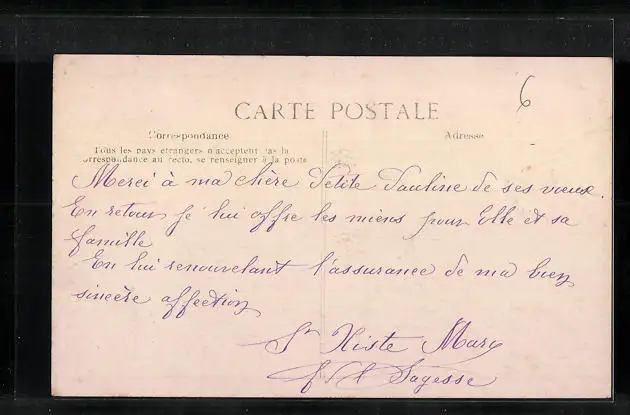 6
CARTE POSTALE
Correspondance
Adresse
Tous les pays étrangers n'acceptent pas la
correspondance au recto, se renseigner à la poste
Merci à ma chère Petite Pauline de ses vœux.
En retour je lui offre les miens pour Elle et sa
famille
En lui renouvelant l'assurance de ma bien
sincère affection
Sr Xiste Mary
f d l Sagesse